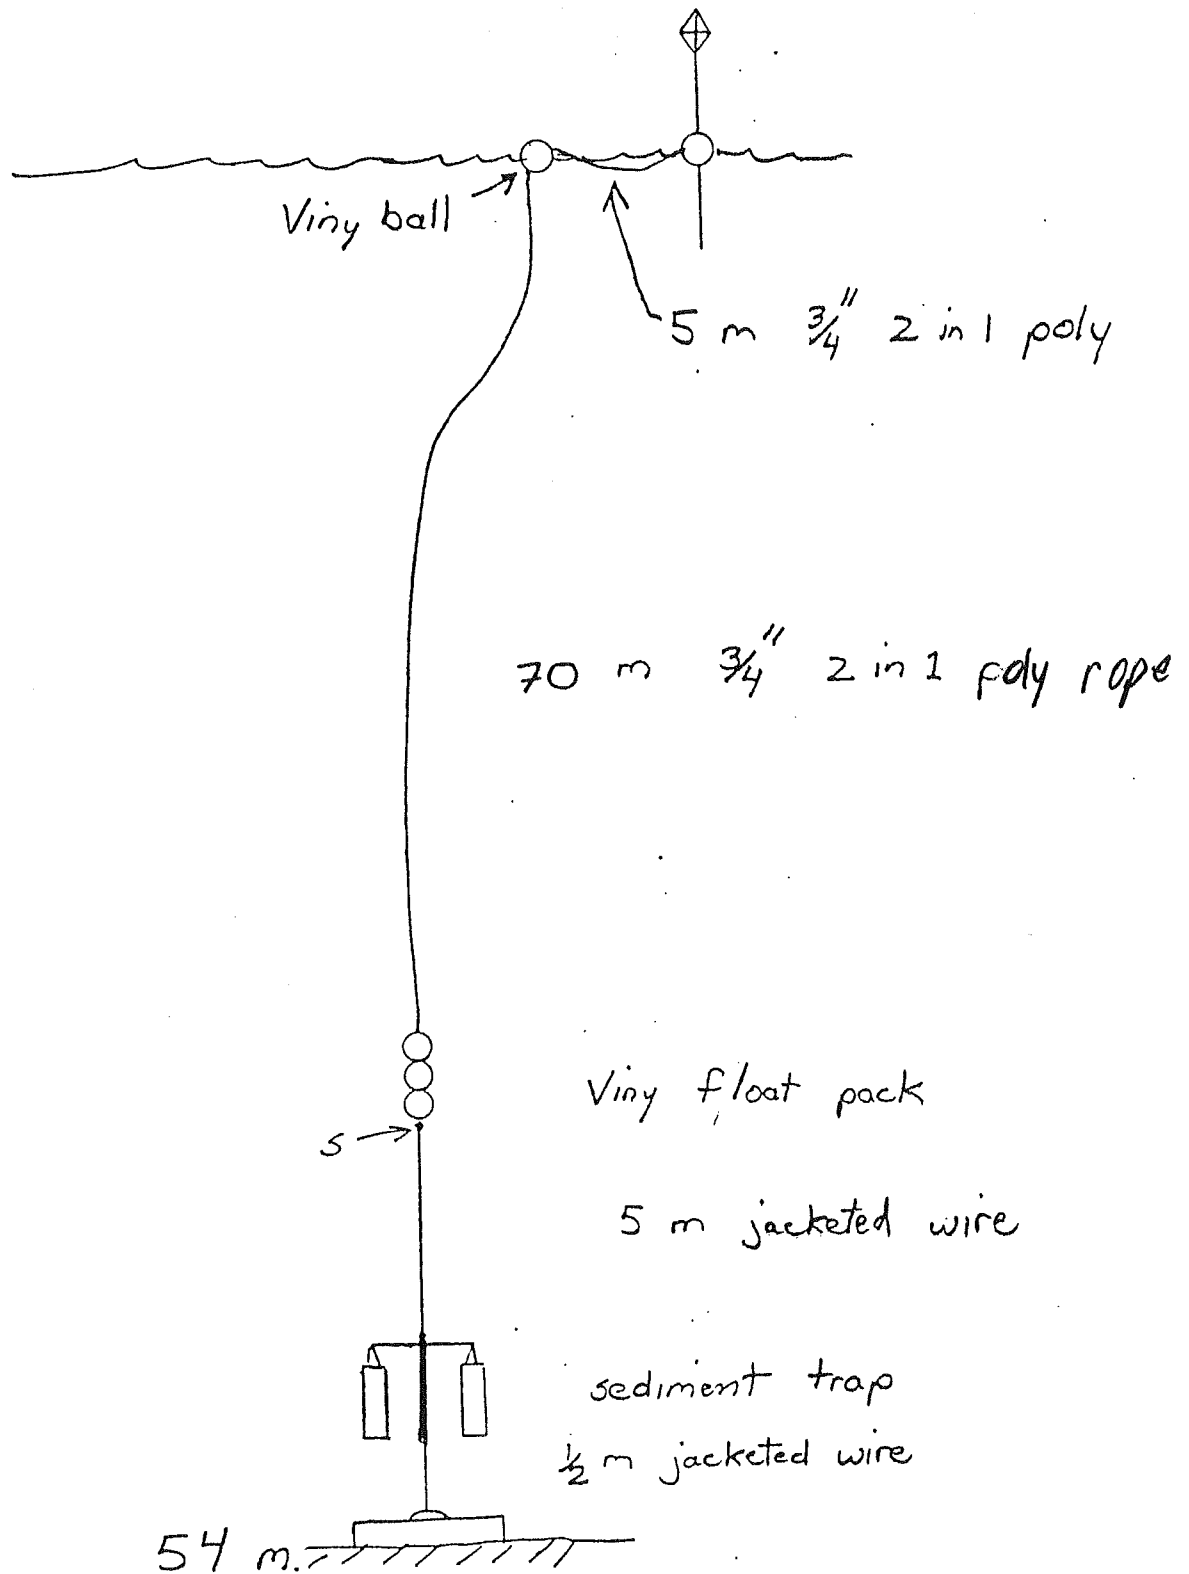 Viny ball
5 m 3/4" 2 in 1 poly
70 m 3/4" 2 in 1 poly rope
Viny float pack
S
5 m jacketed wire
sediment trap
1/2 m jacketed wire
54 m.